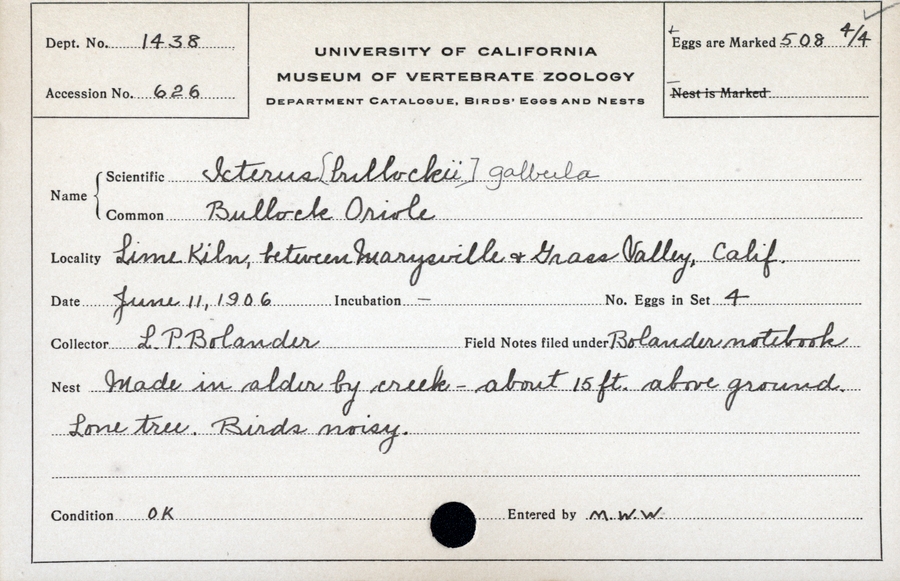 Dept. No. 1438
Accession No. 626
UNIVERSITY OF CALIFORNIA
MUSEUM OF VERTEBRATE ZOOLOGY
DEPARTMENT CATALOGUE, BIRDS' EGGS AND NESTS
Eggs are Marked 508 4/4
Nest is Marked
Name
Scientific Icterus [bullockii] galbula
Common Bullock Oriole
Locality Lime Kiln, between Marysville & Grass Valley, Calif.
Date June 11, 1906 Incubation – No. Eggs in Set 4
Collector L. P. Bolander Field Notes filed under Bolander notebook
Nest Made in alder by creek – about 15 ft. above ground.
Lone tree. Birds noisy.
Condition OK Entered by M.W.W.